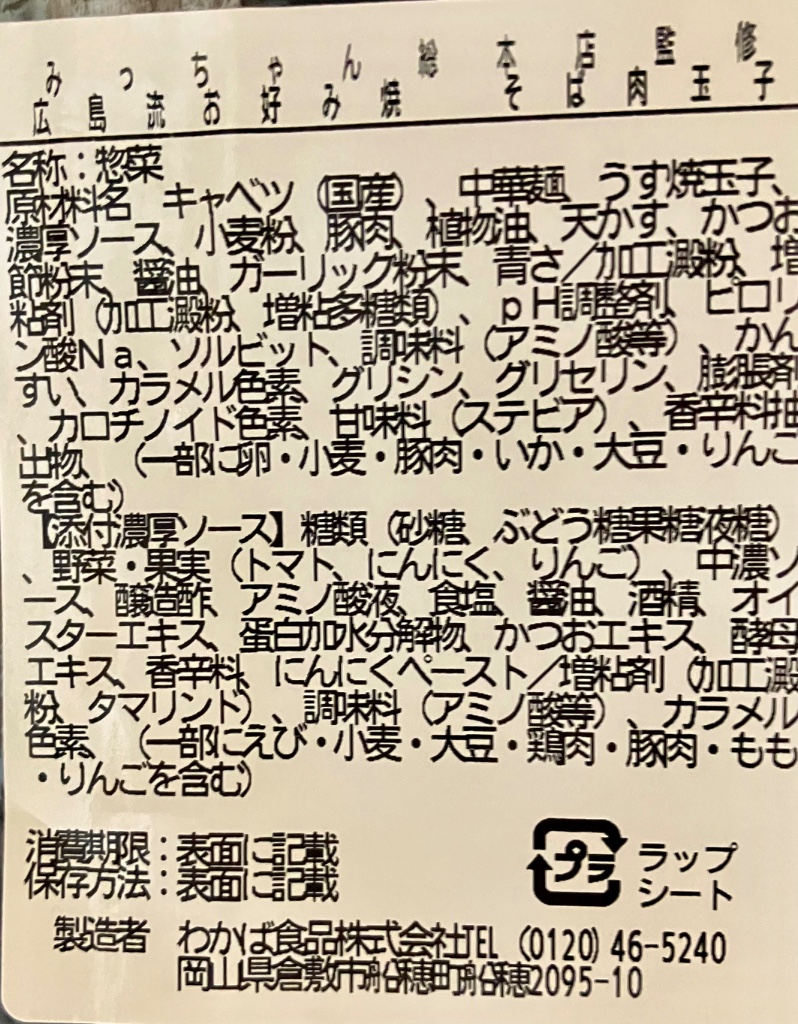 みっちゃん総本店監修
広島流お好み焼 そば肉玉子
名称：惣菜
原材料名 キャベツ（国産）、中華麺、うす焼玉子、
濃厚ソース、小麦粉、豚肉、植物油、天かす、かつお
節粉末、醤油、ガーリック粉末、青さ／加工澱粉、増
粘剤（加工澱粉、増粘多糖類）、ｐＨ調整剤、ピロリ
ン酸Ｎａ、ソルビット、調味料（アミノ酸等）、かん
すい、カラメル色素、グリシン、グリセリン、膨張剤
、カロチノイド色素、甘味料（ステビア）、香辛料抽
出物、（一部に卵・小麦・豚肉・いか・大豆・りんご
を含む）
【添付濃厚ソース】糖類（砂糖、ぶどう糖果糖液糖）
、野菜・果実（トマト、にんにく、りんご）、中濃ソ
ース、醸造酢、アミノ酸液、食塩、醤油、酒精、オイ
スターエキス、蛋白加水分解物、かつおエキス、酵母
エキス、香辛料、にんにくペースト／増粘剤（加工澱
粉、タマリンド）、調味料（アミノ酸等）、カラメル
色素、（一部にえび・小麦・大豆・鶏肉・豚肉・もも
・りんごを含む）
消費期限：表面に記載
保存方法：表面に記載
プラ ラップ
シート
製造者 わかば食品株式会社TEL (0120)46-5240
岡山県倉敷市船穂町船穂2095-10